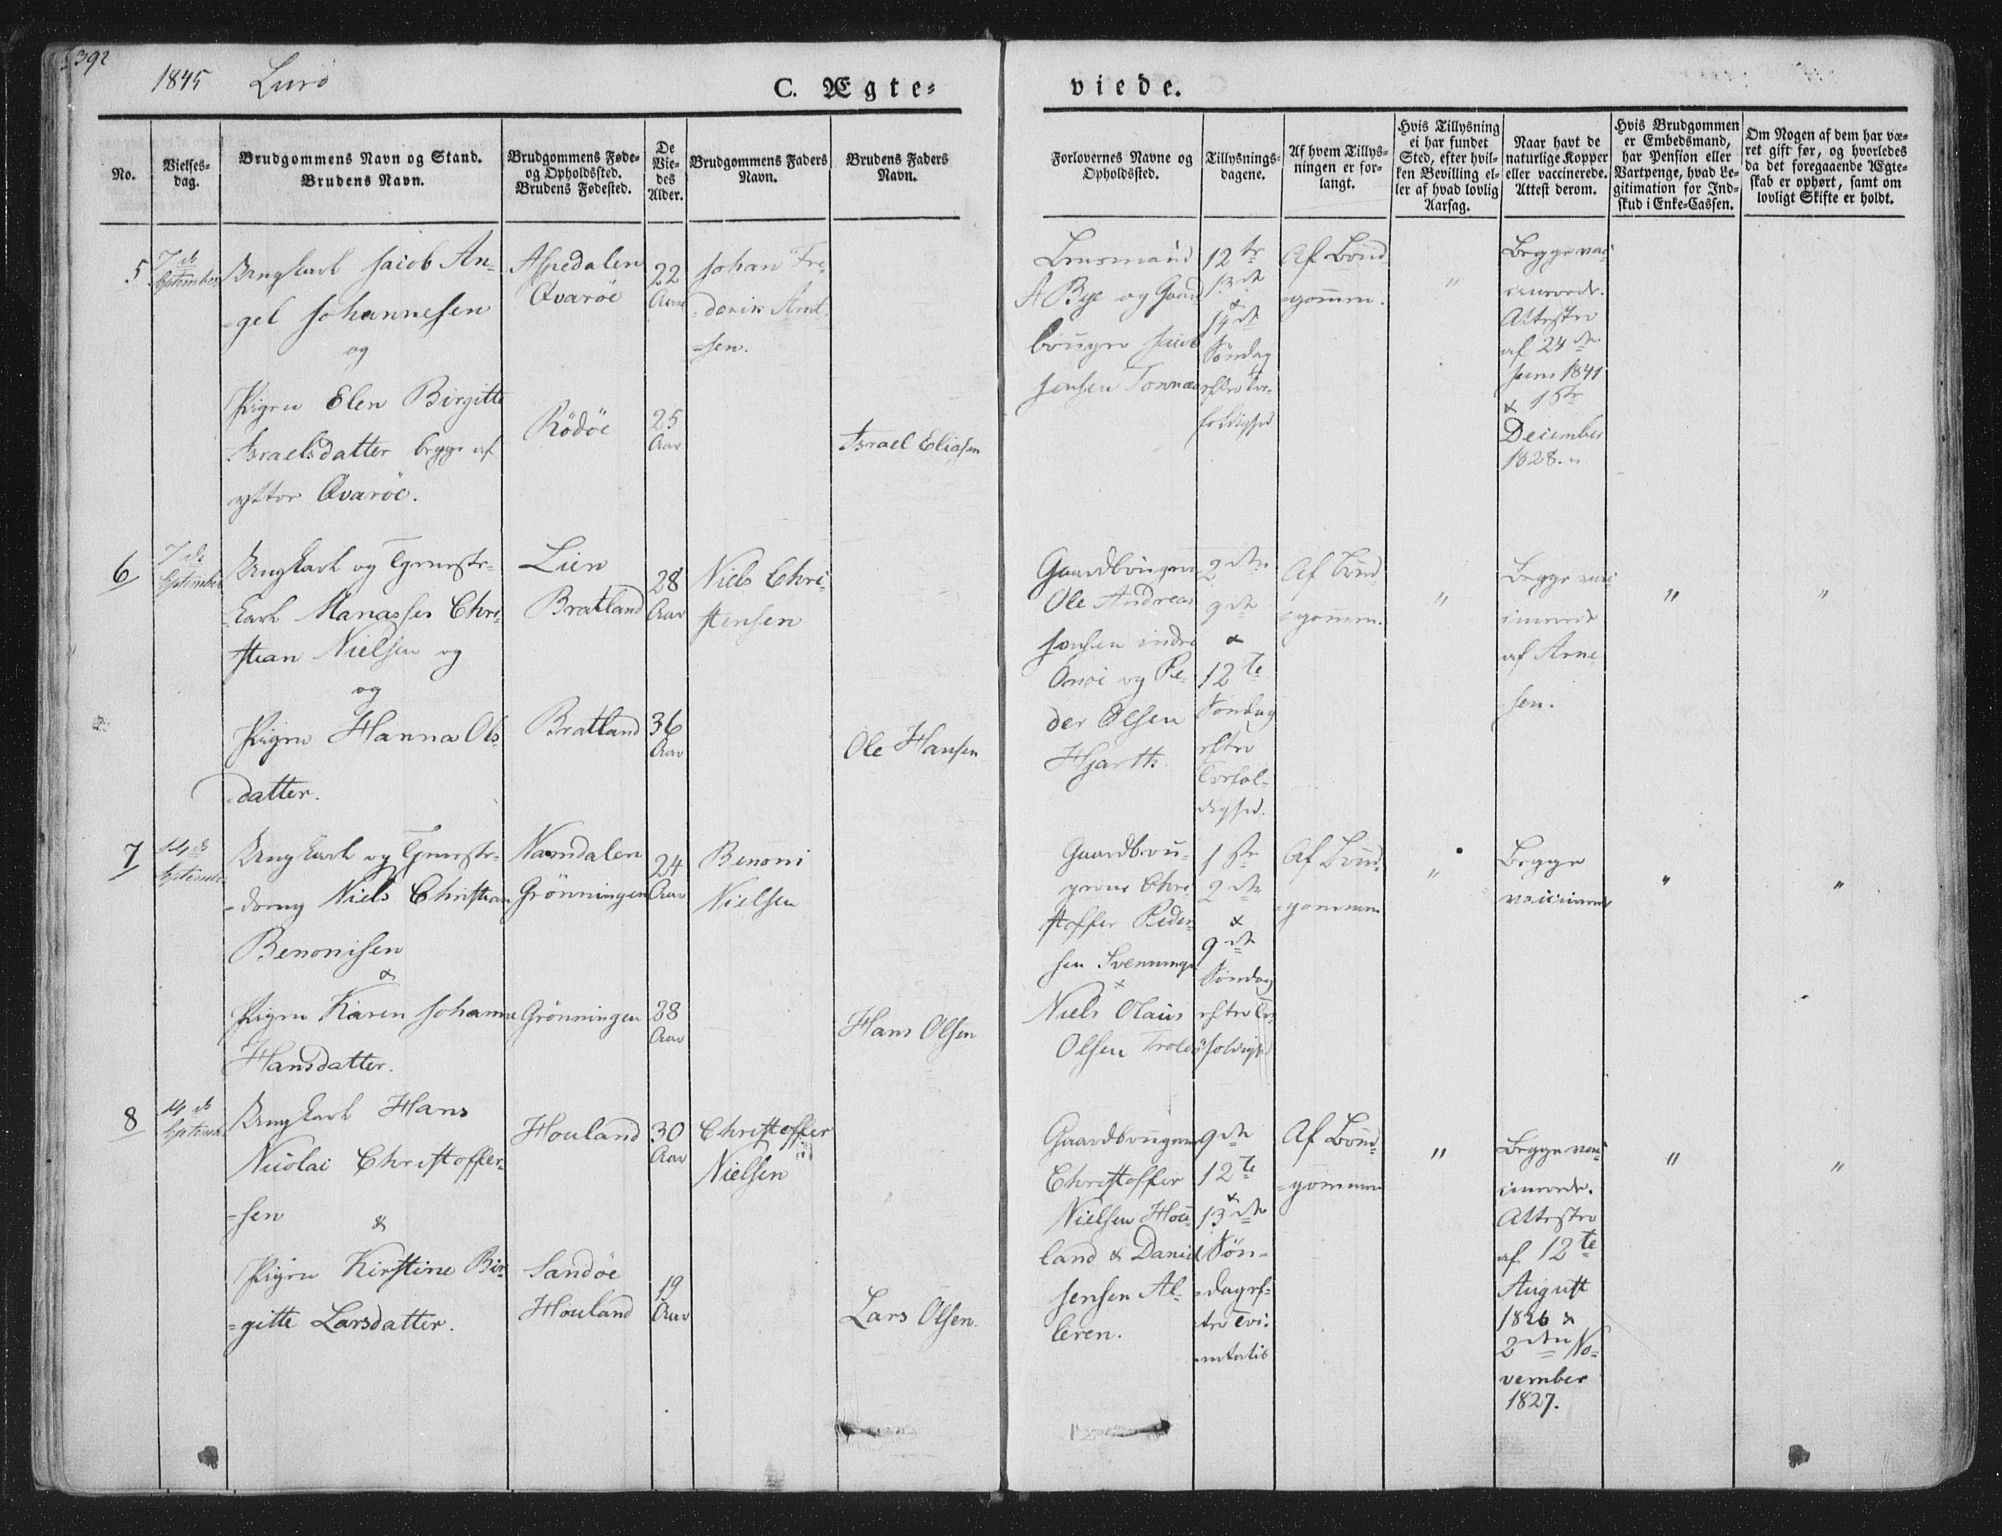 392
1845 Lurö
C. Ægte=
viede.
No.
Vielses-
dag.
Brudgommens Navn og Stand.
Brudens Navn.
Brudgommens Føde-
og Opholdssted.
Brudens Fødested.
De
Vie-
des
Alder.
Brudgommens Faders
Navn.
Brudens Faders
Navn.
Forlovernes Navne og
Opholdssted.
Tillysnings-
dagene.
Af hvem Tillys-
ningen er for-
langt.
Hvis Tillysning
ei har fundet
Sted, efter hvil-
ken Bevilling el-
ler af hvad lovlig
Aarsag.
Naar havt de
naturlige Kopper
eller vaccinerede.
Attest derom.
Hvis Brudgommen
er Embedsmand,
har Pension eller
Vartpenge, hvad Le-
gitimation for Ind-
skud i Enke-Cassen.
Om Nogen af dem har væ-
ret gift før, og hvorledes
da det foregaaende Ægte-
skab er ophørt, samt om
lovligt Skifte er holdt.
5
7de
September
Ungkarl Jacob An-
-gel Johannesen
og
Pigen Elen Birgitte
Israelsdatter begge af
ytter Qvaröe.
Aspedalen
Qvaröe
Rödöe
22
Aar
25
Aar
Johan Fre-
-derik Arnt-
-sen.
Israel Eliasen
Lensmand
A Bye og Gaard
bruger Jacob
Jensen Tonnes
12te
13de
&
14de
Söndag
efter Tre-
foldighed
Af Brud-
-gommen.
"
Begge vac-
cinerede.
Attester
af 24de
Juni 1841
& 1ste
December
1828.
6
7de
September
Ungkarl og Tjeneste-
karl Manasses Chri-
stian Nielsen og
og
Pigen Hanna Ols-
datter.
Lien
Bratland
Bratland
28
Aar
36
Aar
Niels Chri-
stensen
Ole Hansen
Gaardbrugerne
Ole Andreas
Jonsen indre
Onöi og Pe-
der Olsen
Hjarth.
2den
9de
&
12te
Söndag
efter
Trefol-
dighed.
Af Brud-
-gommen.
"
Begge vac-
cinerede
af Arne-
sen.
"
"
7
14de
September
Ungkarl og Tjeneste-
-dreng Niels Christian
Benonisen
&
Pigen Karen Johanne
Hansdatter.
Namdalen
Grönningen
Grönningen
24
Aar
28
Aar
Benoni
Nielsen
Hans Olsen
Gaardbru-
gerne Chri
stoffer Peder-
sen Svenninge
&
Niels Olaus
Olsen
1ste
2den
&
9de
Söndag
efter Tre-
foldighed
Af Brud-
-gommen
"
Begge
vaccinerede
"
"
8
14de
September
Ungkarl Hans
Nicolai Christoffer-
-sen
&
Pigen Kirstine Bir-
-gitte Larsdatter.
Houland
Sandöe
Houland
30
Aar
19
Aar
Christoffer
Nielsen
Lars Olsen.
Gaardbrugerne
Christoffer
Nielsen Hou-
land & Daniel
Jensen Al-
leren.
9de
12te
&
13de
Sön-
-dag ef-
-ter Tri-
-nitatis
Af Brud-
-gommen
"
Begge vac-
cinerede.
Attester
af 12te
August
1826 &
2den No-
vember
1827.
"
"